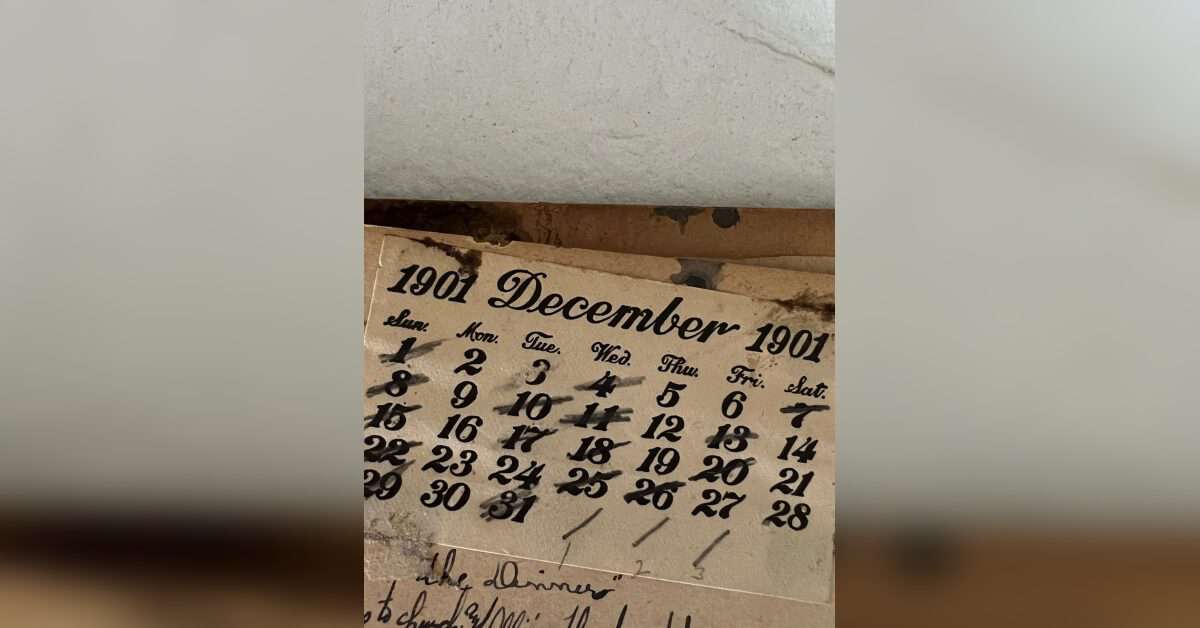 1901 December 1901
Sun. Mon. Tue. Wed. Thu. Fri. Sat.
1 2 3 4 5 6 7
8 9 10 11 12 13 14
15 16 17 18 19 20 21
22 23 24 25 26 27 28
29 30 31
1 2 3
the Dinners"
to church